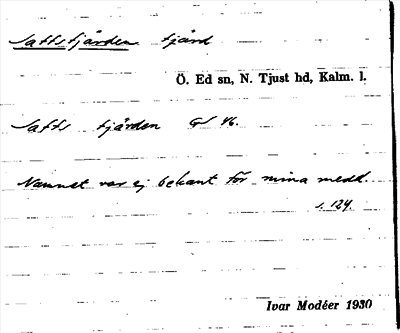 Saltsfjärden fjärd
Ö. Ed sn, N. Tjust hd, Kalm. l.
Safts fjärden GS 46.
Namnet var ej bekant för mina medd.
s. 124.
Ivar Modéer 1930